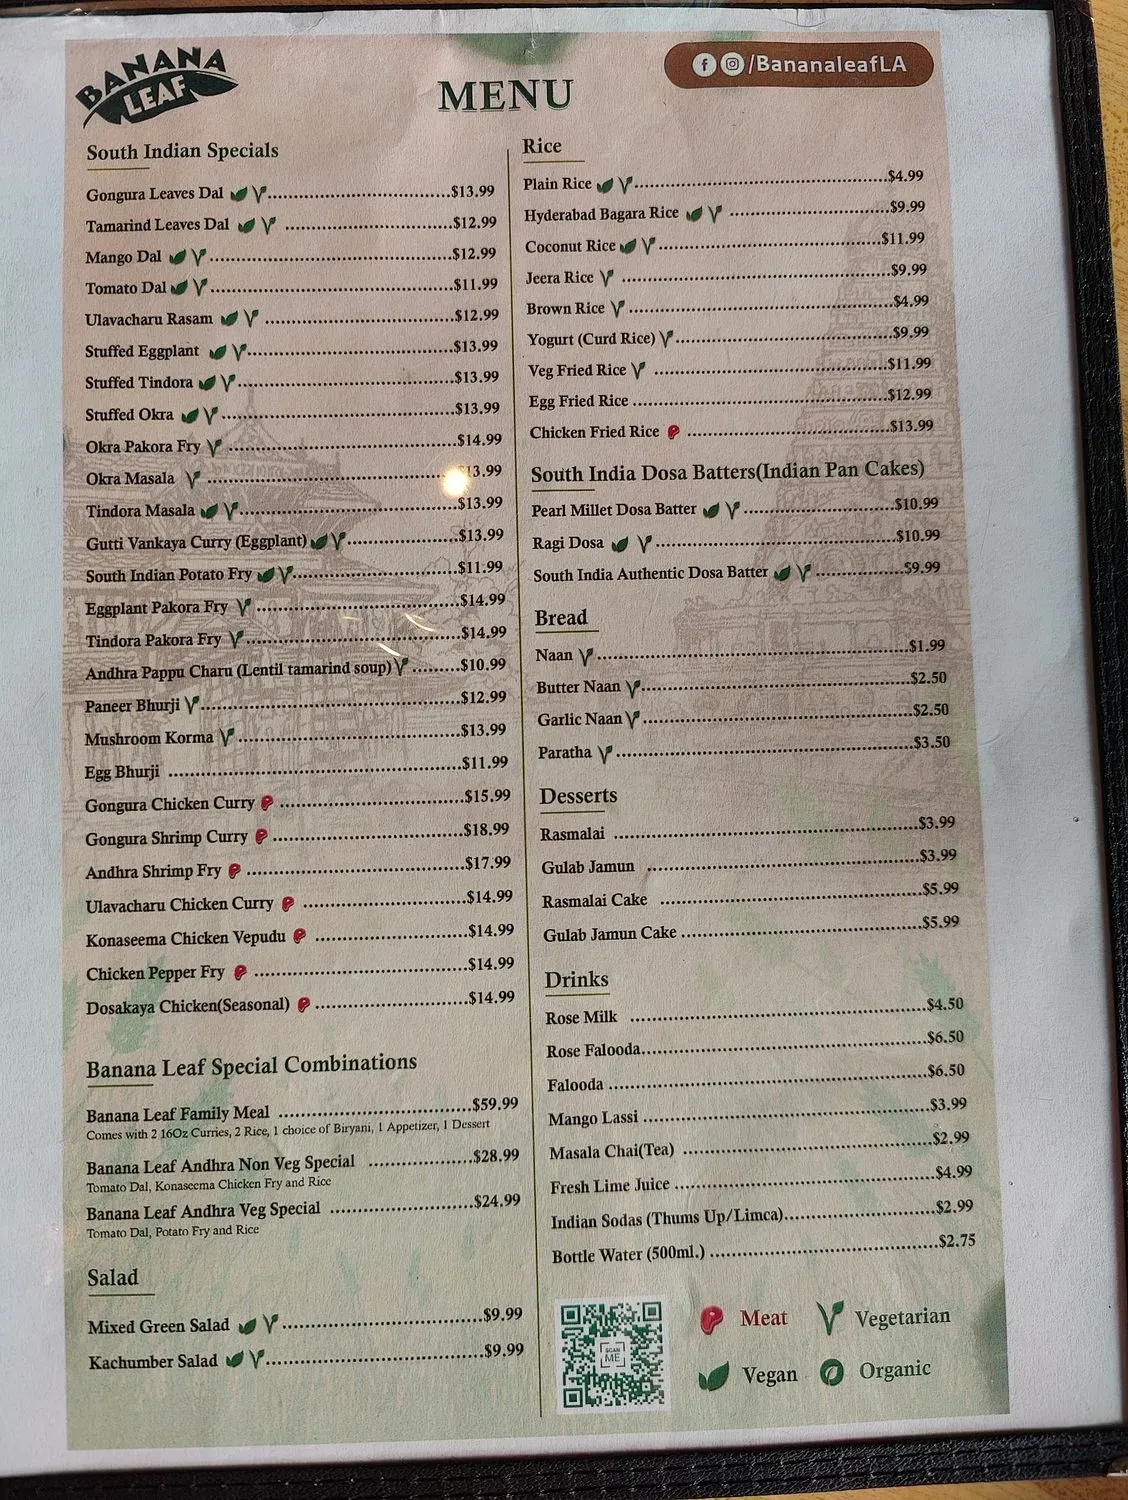 BANANA LEAF
MENU
f /BananaleafLA
South Indian Specials
Gongura Leaves Dal V........................$13.99
Tamarind Leaves Dal V........................$12.99
Mango Dal V........................$12.99
Tomato Dal V........................$11.99
Ulavacharu Rasam V........................$12.99
Stuffed Eggplant V........................$13.99
Stuffed Tindora V........................$13.99
Stuffed Okra V........................$13.99
Okra Pakora Fry V........................$14.99
Okra Masala V........................13.99
Tindora Masala V........................$13.99
Gutti Vankaya Curry (Eggplant) V........................$13.99
South Indian Potato Fry V........................$11.99
Eggplant Pakora Fry V........................$14.99
Tindora Pakora Fry V........................$14.99
Andhra Pappu Charu (Lentil tamarind soup) V........$10.99
Paneer Bhurji V........................$12.99
Mushroom Korma V........................$13.99
Egg Bhurji ........................$11.99
Gongura Chicken Curry ........................$15.99
Gongura Shrimp Curry ........................$18.99
Andhra Shrimp Fry ........................$17.99
Ulavacharu Chicken Curry ........................$14.99
Konaseema Chicken Vepudu ........................$14.99
Chicken Pepper Fry ........................$14.99
Dosakaya Chicken(Seasonal) ........................$14.99
Banana Leaf Special Combinations
Banana Leaf Family Meal ........................$59.99
Comes with 2 16Oz Curries, 2 Rice, 1 choice of Biryani, 1 Appetizer, 1 Dessert
Banana Leaf Andhra Non Veg Special ................$28.99
Tomato Dal, Konaseema Chicken Fry and Rice
Banana Leaf Andhra Veg Special ........................$24.99
Tomato Dal, Potato Fry and Rice
Salad
Mixed Green Salad V........................$9.99
Kachumber Salad V........................$9.99
Rice
Plain Rice V........................$4.99
Hyderabad Bagara Rice V........................$9.99
Coconut Rice V........................$11.99
Jeera Rice V........................$9.99
Brown Rice V........................$4.99
Yogurt (Curd Rice) V........................$9.99
Veg Fried Rice V........................$11.99
Egg Fried Rice ........................$12.99
Chicken Fried Rice ........................$13.99
South India Dosa Batters(Indian Pan Cakes)
Pearl Millet Dosa Batter V........................$10.99
Ragi Dosa V........................$10.99
South India Authentic Dosa Batter V................$9.99
Bread
Naan V........................$1.99
Butter Naan V........................$2.50
Garlic Naan V........................$2.50
Paratha V........................$3.50
Desserts
Rasmalai ........................$3.99
Gulab Jamun ........................$3.99
Rasmalai Cake ........................$5.99
Gulab Jamun Cake ........................$5.99
Drinks
Rose Milk ........................$4.50
Rose Falooda........................$6.50
Falooda ........................$6.50
Mango Lassi ........................$3.99
Masala Chai(Tea) ........................$2.99
Fresh Lime Juice ........................$4.99
Indian Sodas (Thums Up/Limca)........................$2.99
Bottle Water (500ml.) ........................$2.75
SCAN ME
Meat
V Vegetarian
Vegan
Organic